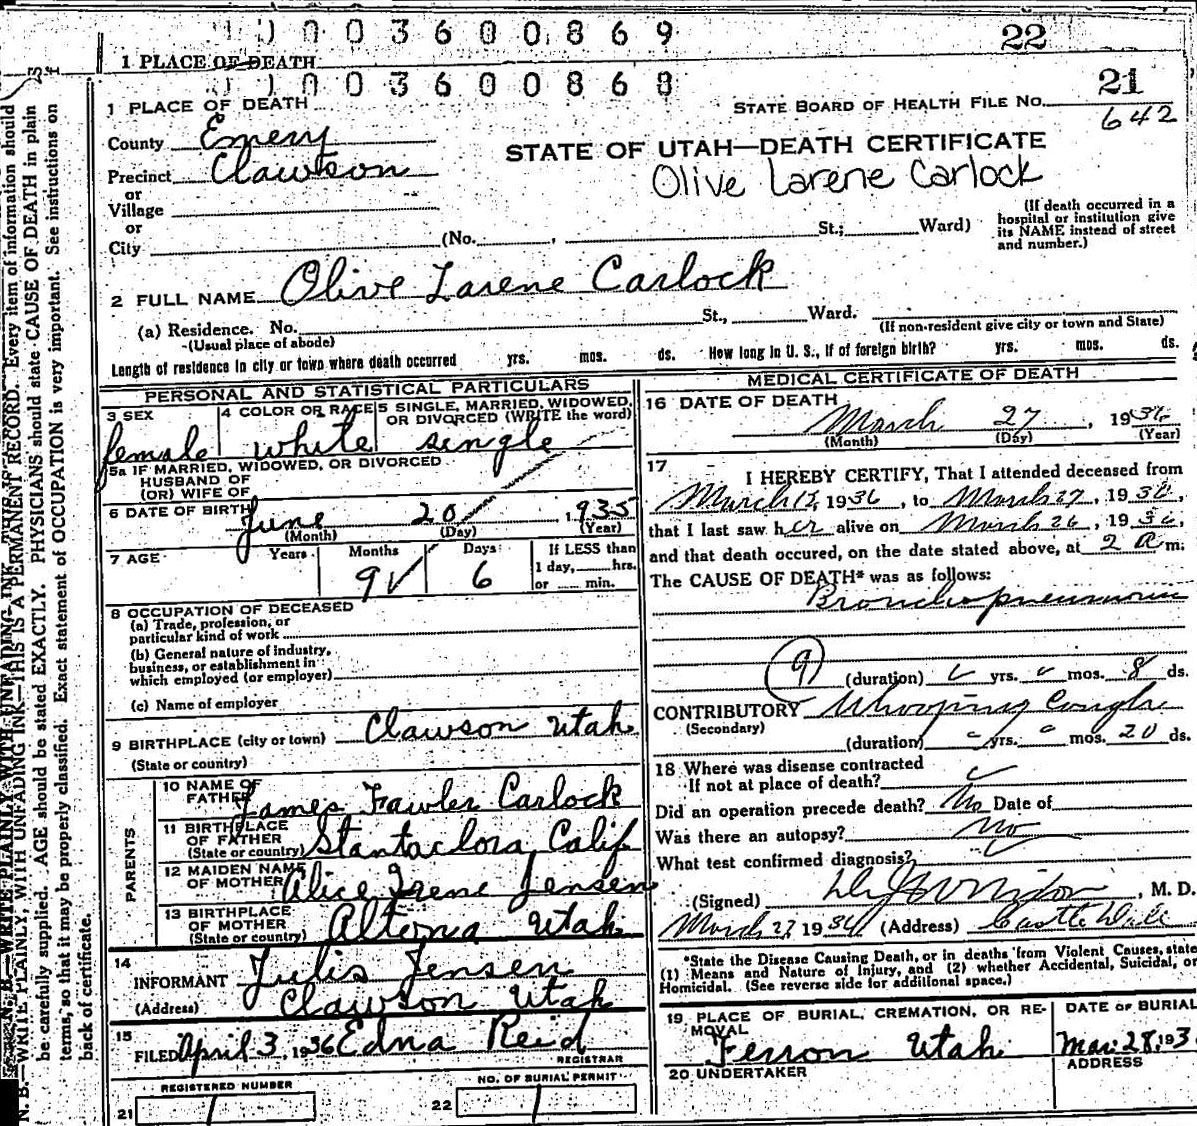 1 1 0 0 3 6 0 0 8 6 9
22
1 PLACE OF DEATH
1 1 0 0 3 6 0 0 8 6 8
21
1 PLACE OF DEATH
STATE BOARD OF HEALTH FILE NO.
642
County Emery
STATE OF UTAH—DEATH CERTIFICATE
Precinct Clawson
Olive Larene Carlock
or
Village
or
City (No. , St.; Ward)
(If death occurred in a hospital or institution give its NAME instead of street and number.)
2 FULL NAME Olive Larene Carlock
(a) Residence. No. St., Ward.
(Usual place of abode)
(If non-resident give city or town and State)
Length of residence in city or town where death occurred yrs. mos. ds. How long in U. S., if of foreign birth? yrs. mos. ds.
PERSONAL AND STATISTICAL PARTICULARS
3 SEX
female
4 COLOR OR RACE
white
5 SINGLE, MARRIED, WIDOWED, OR DIVORCED (WRITE the word)
single
5a IF MARRIED, WIDOWED, OR DIVORCED
HUSBAND OF
(OR) WIFE OF
6 DATE OF BIRTH June 20, 1935
(Month) (Day) (Year)
7 AGE Years Months Days If LESS than
9 6
1 day, hrs.
or min.
8 OCCUPATION OF DECEASED
(a) Trade, profession, or
particular kind of work
(b) General nature of industry,
business, or establishment in
which employed (or employer)
(c) Name of employer
9 BIRTHPLACE (city or town) Clawson Utah
(State or country)
PARENTS
10 NAME OF FATHER James Fawler Carlock
11 BIRTHPLACE OF FATHER (State or country) Stantaclora, Calif.
12 MAIDEN NAME OF MOTHER Alice Irene Jensen
13 BIRTHPLACE OF MOTHER (State or country) Altona Utah
14
INFORMANT Julis Jensen
(Address) Clawson Utah
15
FILED April 3, 1936 Edna Reid
REGISTRAR
REGISTERED NUMBER
21 1
NO. OF BURIAL PERMIT
22 1
MEDICAL CERTIFICATE OF DEATH
16 DATE OF DEATH
March 27, 1936
(Month) (Day) (Year)
17
I HEREBY CERTIFY, That I attended deceased from
March 15, 1936, to March 27, 1936,
that I last saw her alive on March 26, 1936,
and that death occured, on the date stated above, at 2 a m.
The CAUSE OF DEATH* was as follows:
Bronchopneumonia
9
(duration) yrs. mos. 8 ds.
CONTRIBUTORY Whooping Cough
(Secondary)
(duration) yrs. mos. 20 ds.
18 Where was disease contracted
If not at place of death?
Did an operation precede death? No Date of
Was there an autopsy? no
What test confirmed diagnosis?
(Signed) , M. D.
March 27 1936 (Address) Castle Dale
*State the Disease Causing Death, or in deaths from Violent Causes, state
(1) Means and Nature of Injury, and (2) whether Accidental, Suicidal, or
Homicidal. (See reverse side for additional space.)
19 PLACE OF BURIAL, CREMATION, OR REMOVAL
Ferron Utah
DATE OF BURIAL
Mar. 28, 193
20 UNDERTAKER
ADDRESS
N. B.—WRITE PLAINLY, WITH UNFADING INK—THIS IS A PERMANENT RECORD. Every item of information should
be carefully supplied. AGE should be stated EXACTLY. PHYSICIANS should state CAUSE OF DEATH in plain
terms, so that it may be properly classified. Exact statement of OCCUPATION is very important. See instructions on
back of certificate.